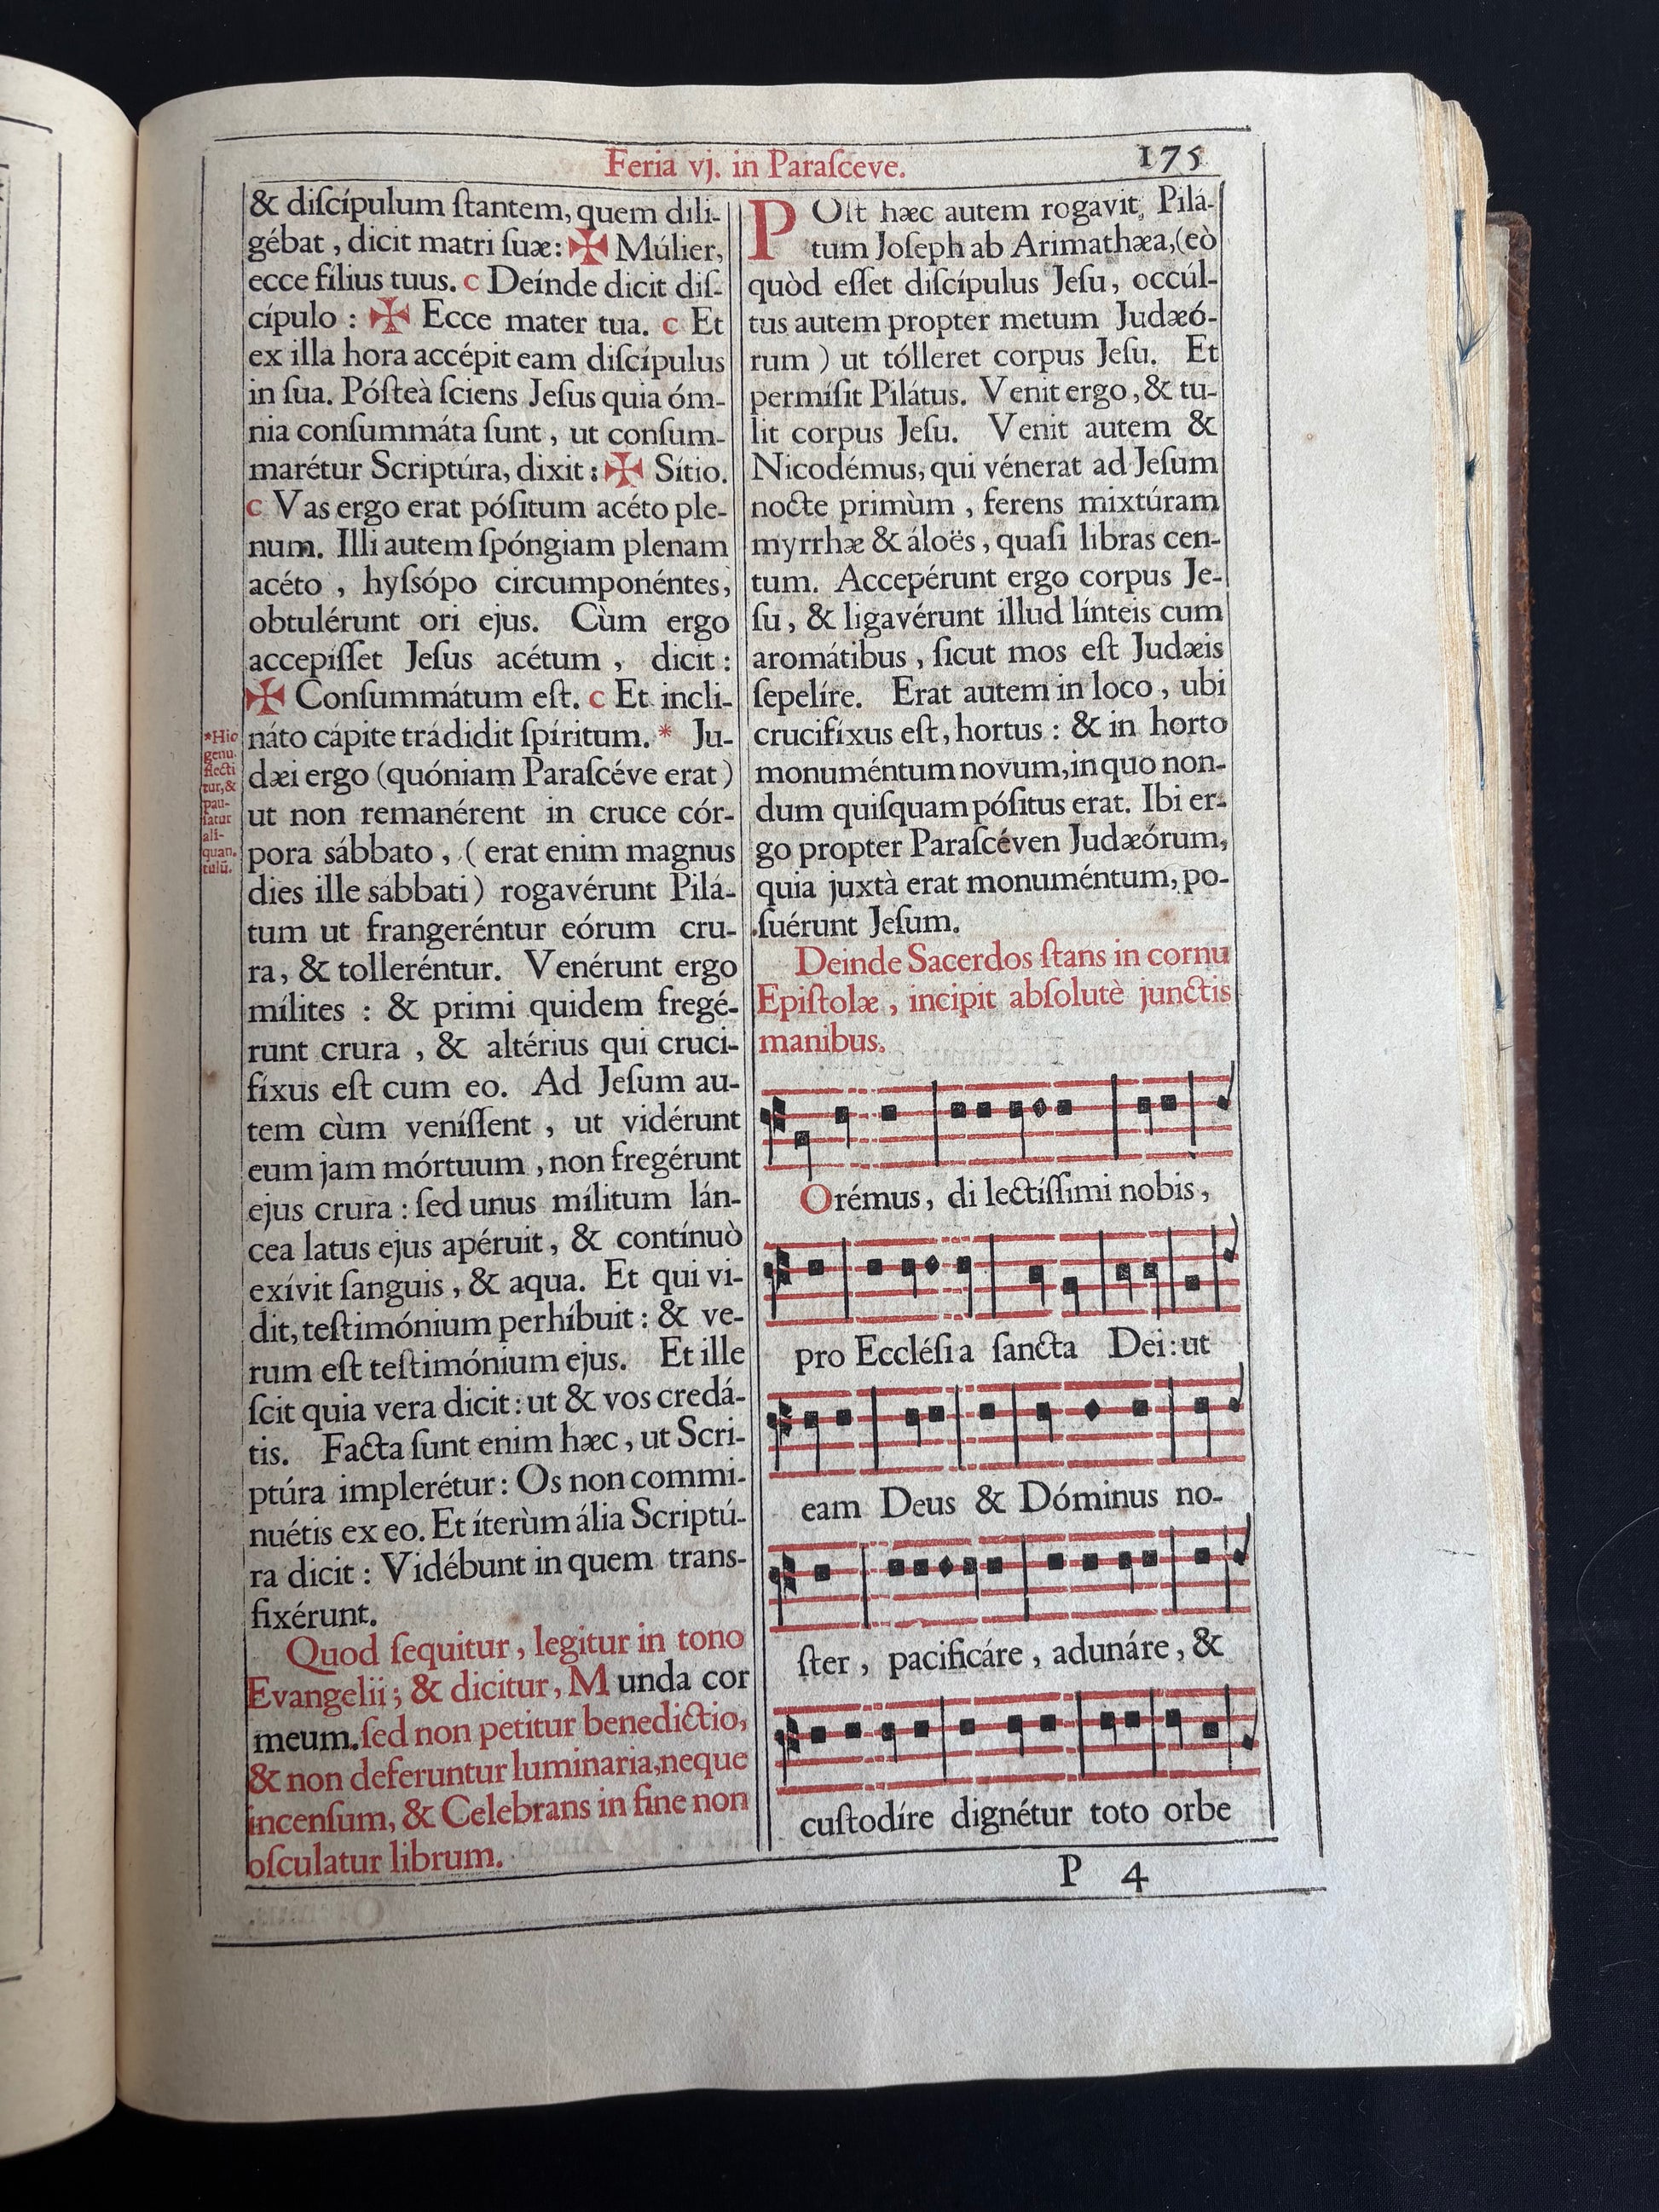 Feria vj. in Paraſceve.
175
& diſcípulum ſtantem, quem dili-
gébat, dicit matri ſuæ: ✠ Múlier,
ecce filius tuus. c Deínde dicit diſ-
cípulo : ✠ Ecce mater tua. c Et
ex illa hora accépit eam diſcípulus
in ſua. Póſteà ſciens Jeſus quia óm-
nia conſummáta ſunt, ut conſum-
marétur Scriptúra, dixit: ✠ Sítio.
c Vas ergo erat póſitum acéto ple-
num. Illi autem ſpóngiam plenam
acéto , hyſsópo circumponéntes,
obtulérunt ori ejus. Cùm ergo
accepíſſet Jeſus acétum , dicit:
✠ Conſummátum eſt. c Et incli-
náto cápite trádidit ſpíritum. * Ju-
dæi ergo (quóniam Paraſcéve erat)
ut non remanérent in cruce cór-
pora sábbato , (erat enim magnus
dies ille sábbati) rogavérunt Pilá-
tum ut frangeréntur eórum cru-
ra, & tolleréntur. Venérunt ergo
mílites : & primi quidem fregé-
runt crura , & altérius qui cruci-
fíxus eſt cum eo. Ad Jeſum au-
tem cùm veníſſent , ut vidérunt
eum jam mórtuum , non fregérunt
ejus crura : ſed unus mílitum lán-
cea latus ejus apéruit, & contínuò
exívit ſanguis, & aqua. Et qui vi-
dit, teſtimónium perhíbuit : & ve-
rum eſt teſtimónium ejus. Et ille
ſcit quia vera dicit: ut & vos credá-
tis. Facta ſunt enim hæc, ut Scri-
ptúra implerétur: Os non commi-
nuétis ex eo. Et íterùm ália Scriptú-
ra dicit : Vidébunt in quem trans-
fixérunt.
Quod ſequitur, legitur in tono
Evangelii; & dicitur, Munda cor
meum. ſed non petitur benedictio,
& non deferuntur luminaria, neque
incenſum, & Celebrans in fine non
oſculatur librum.
*Hic
genu-
flecti
tur, &
pau-
ſatur
ali-
quan-
tulũ.
POſt hæc autem rogavit, Pilá-
tum Joſeph ab Arimathæa, (eò
quòd eſſet diſcípulus Jeſu, occúl-
tus autem propter metum Judæó-
rum ) ut tólleret corpus Jeſu. Et
permíſit Pilátus. Venit ergo, & tu-
lit corpus Jeſu. Venit autem &
Nicodémus, qui vénerat ad Jeſum
nocte primùm , ferens mixtúram
myrrhæ & áloës, quaſi libras cen-
tum. Accepérunt ergo corpus Je-
ſu, & ligavérunt illud línteis cum
aromátibus, ſicut mos eſt Judæis
ſepelíre. Erat autem in loco, ubi
crucifíxus eſt, hortus : & in horto
monuméntum novum, in quo non-
dum quiſquam póſitus erat. Ibi er-
go propter Paraſcéven Judæórum,
quia juxtà erat monuméntum, po-
ſuérunt Jeſum.
Deinde Sacerdos ſtans in cornu
Epiſtolæ, incipit abſolutè junctis
manibus.
Orémus, di lectíſſimi nobis,
pro Eccléſi a ſancta Dei: ut
eam Deus & Dóminus no-
ſter, pacificáre, adunáre, &
cuſtodíre dignétur toto orbe
P 4